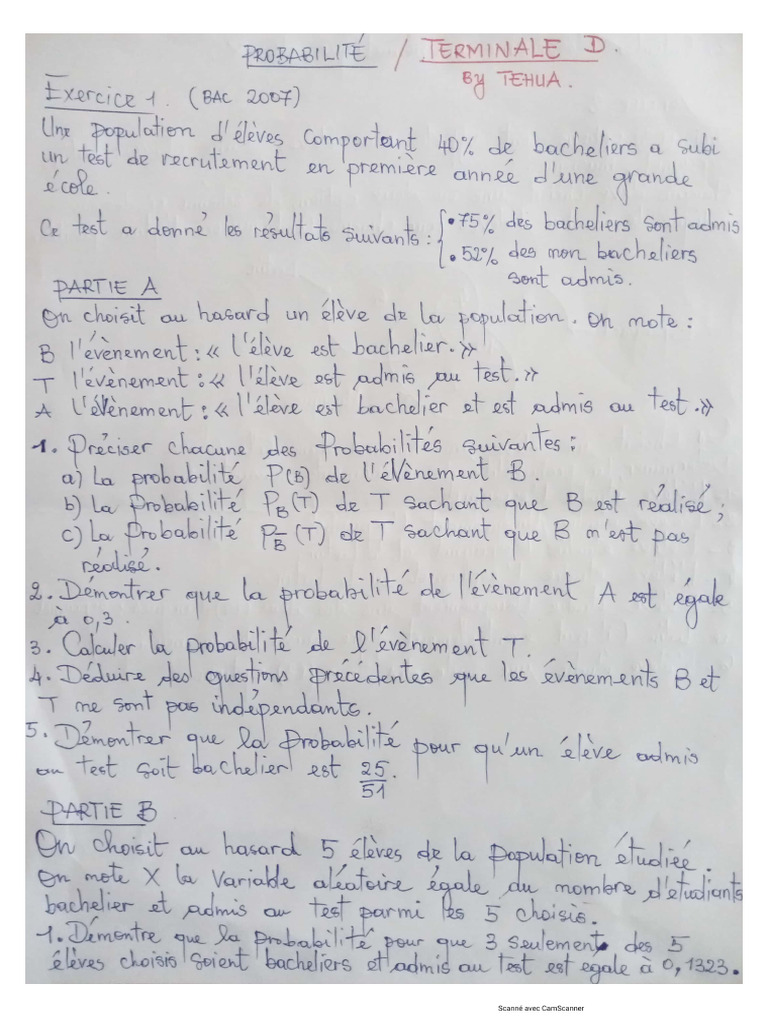 PROBABILITÉ / TERMINALE D.
By TEHUA.
Exercice 1. (BAC 2007)
Une population d'élèves comportant 40% de bacheliers a subi
un test de recrutement en première année d'une grande
école.
Ce test a donné les résultats suivants : { • 75% des bacheliers sont admis
• 52% des non bacheliers
sont admis.
PARTIE A
On choisit au hasard un élève de la population. On note :
B l'évènement : « l'élève est bachelier. »
T l'évènement : « l'élève est admis au test. »
A l'évènement : « l'élève est bachelier et est admis au test. »
1. Préciser chacune des Probabilités suivantes :
a) La probabilité P(B) de l'évènement B.
b) La Probabilité P_B(T) de T sachant que B est réalisé ;
c) La Probabilité P_B̅(T) de T sachant que B n'est pas
réalisé.
2. Démontrer que la probabilité de l'évènement A est égale
à 0,3.
3. Calculer la probabilité de l'évènement T.
4. Déduire des questions précédentes que les évènements B et
T ne sont pas indépendants.
5. Démontrer que la Probabilité pour qu'un élève admis
au test soit bachelier est 25/51.
PARTIE B
On choisit au hasard 5 élèves de la Population étudiée.
On note X la variable aléatoire égale au nombre d'étudiants
bachelier et admis au test parmi les 5 choisis.
1. Démontre que la probabilité pour que 3 seulement des 5
élèves choisis soient bacheliers et admis au test est egale à 0,1323.
Scanné avec CamScanner